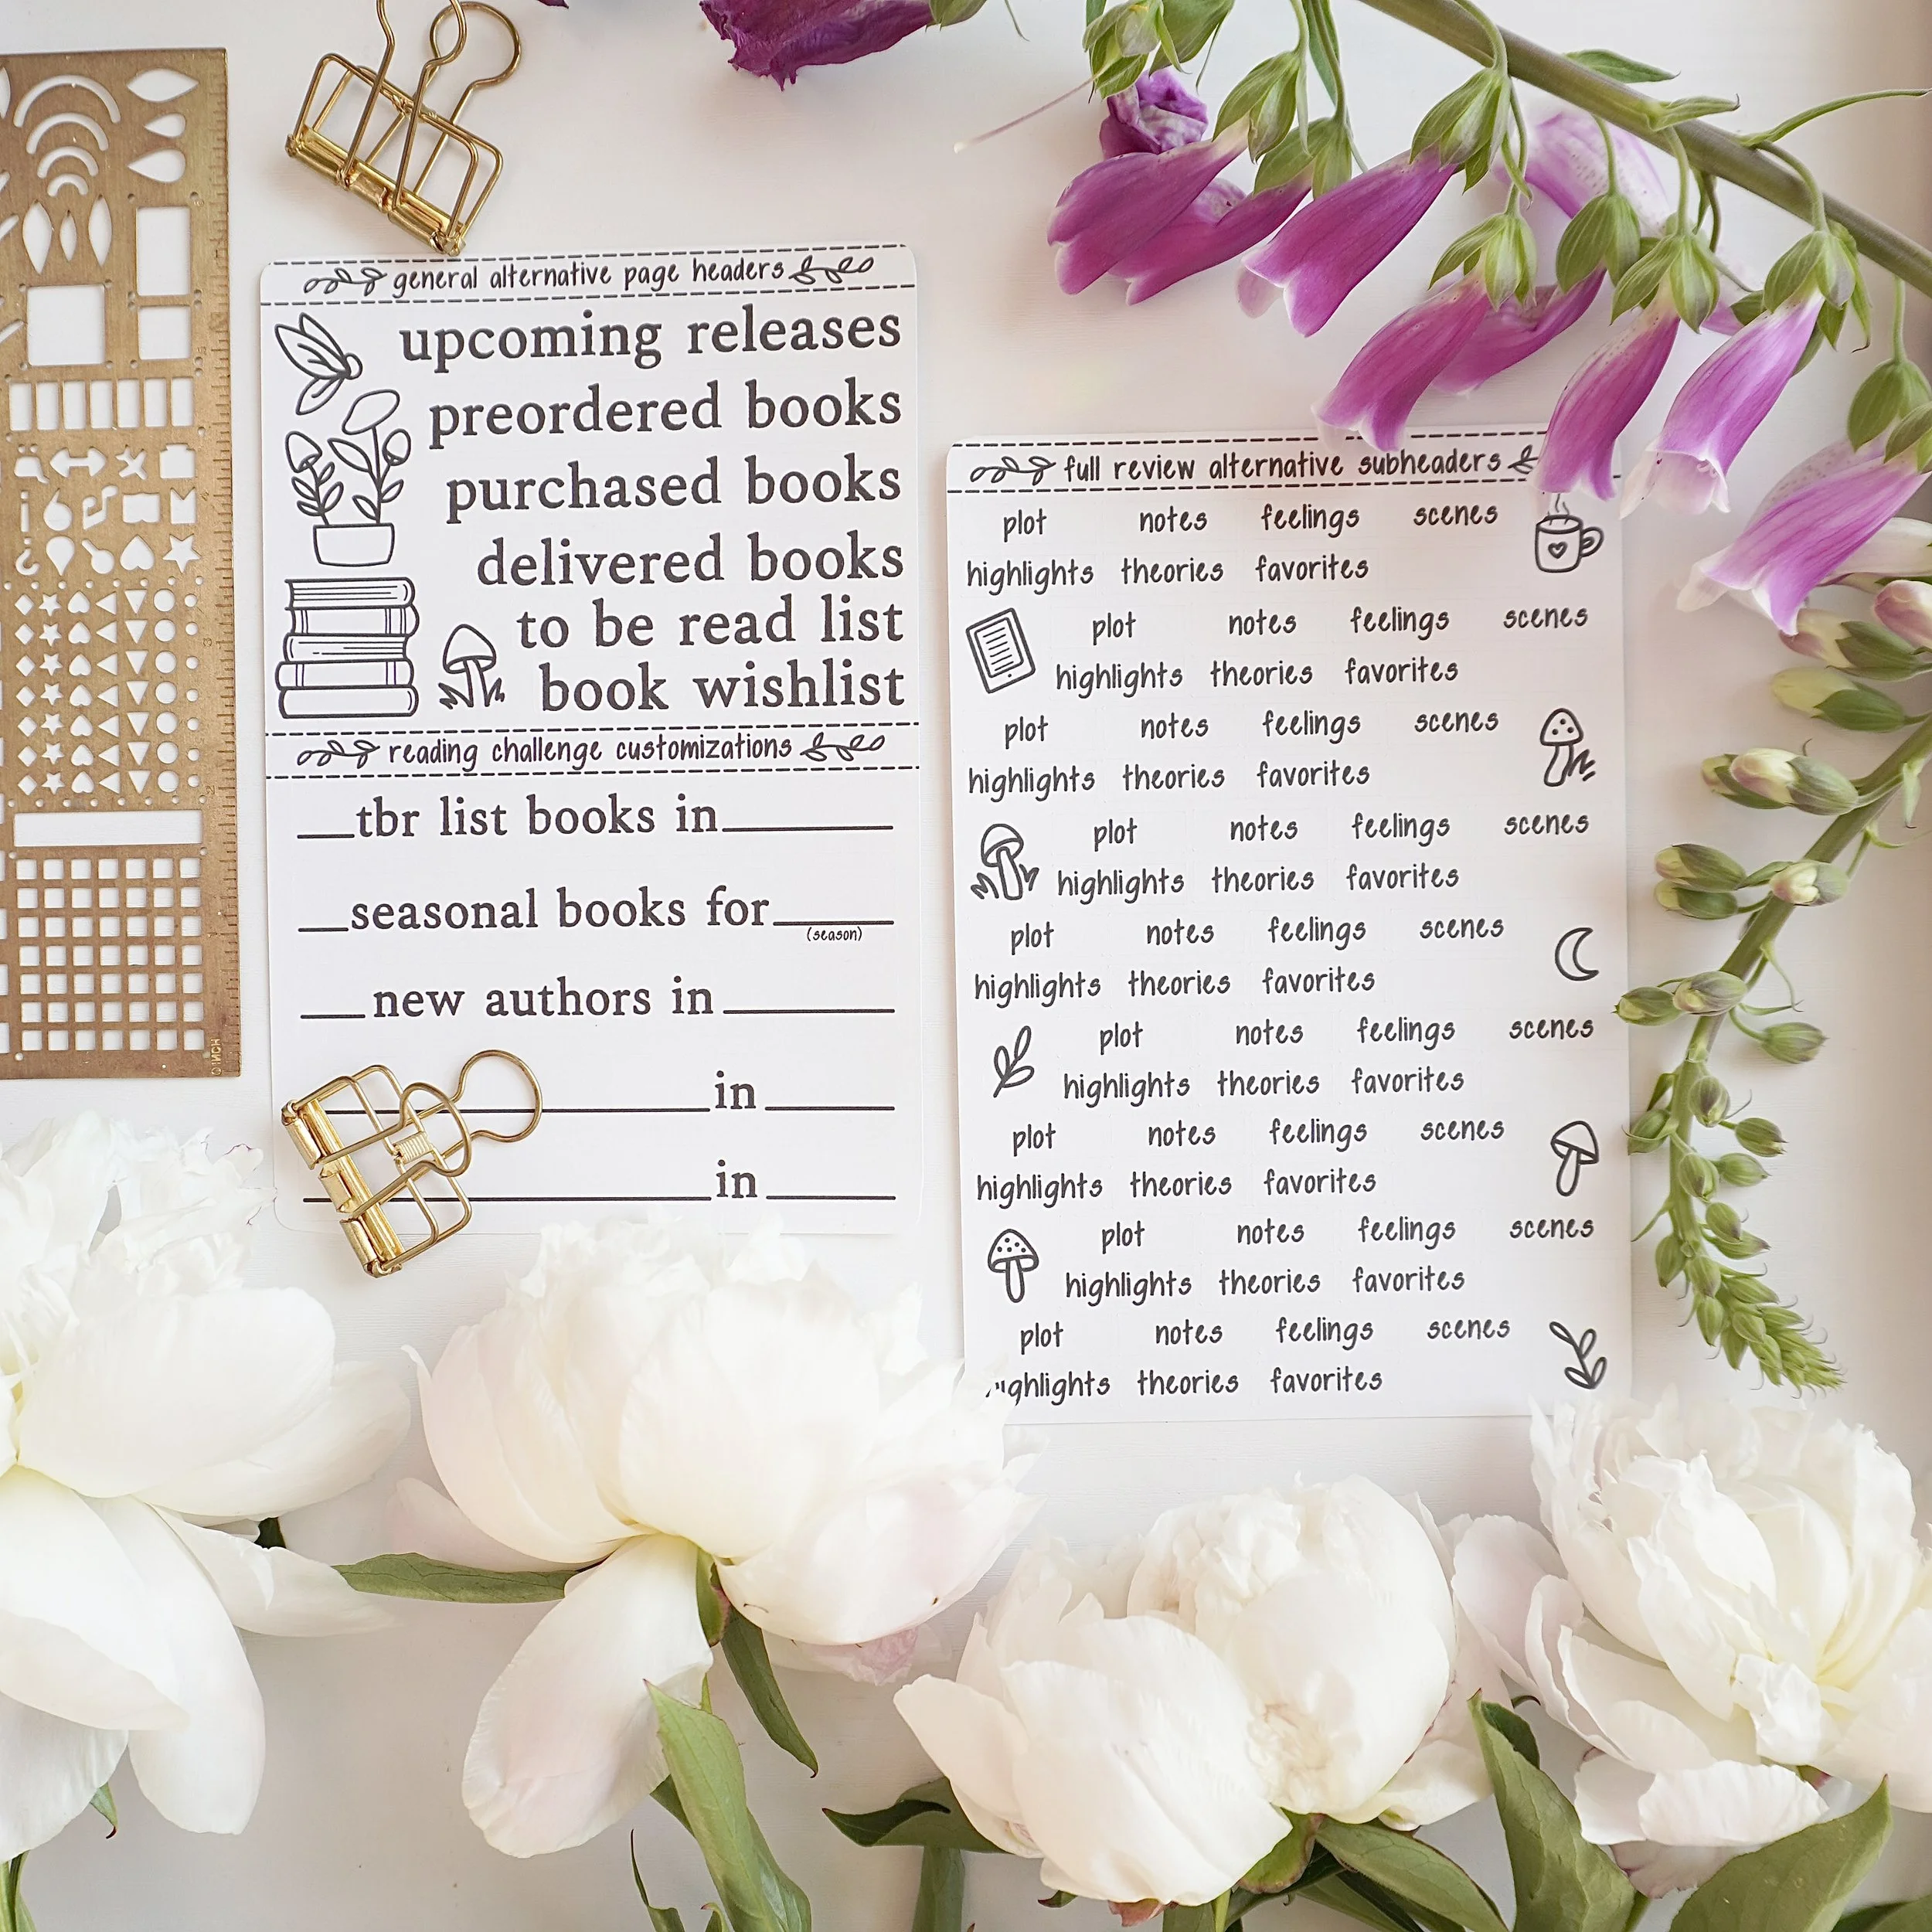 general alternative page headers
upcoming releases
preordered books
purchased books
delivered books
to be read list
book wishlist
reading challenge customizations
__tbr list books in______
__seasonal books for______
(season)
__new authors in______
in
in
full review alternative subheaders
plot notes feelings scenes
highlights theories favorites
plot notes feelings scenes
highlights theories favorites
plot notes feelings scenes
highlights theories favorites
plot notes feelings scenes
highlights theories favorites
plot notes feelings scenes
highlights theories favorites
plot notes feelings scenes
highlights theories favorites
plot notes feelings scenes
highlights theories favorites
plot notes feelings scenes
highlights theories favorites
plot notes feelings scenes
theories favorites